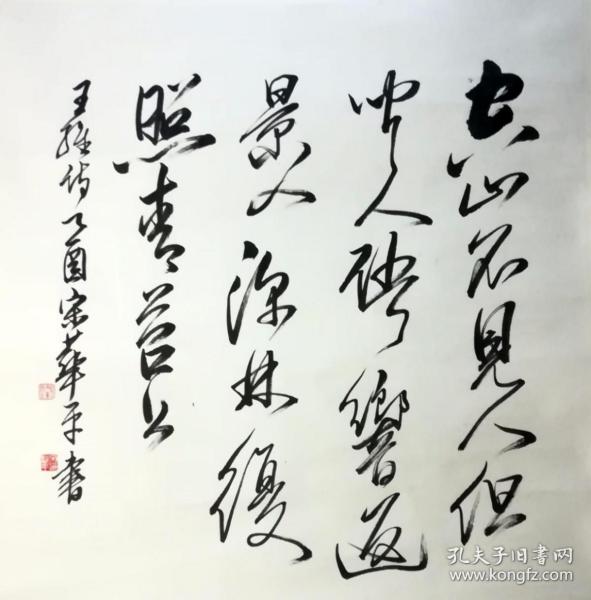 空山不見人但
聞人語響返
景入深林復
照青苔上
王維詩乙酉宋華平書
孔夫子旧书网
www.kongfz.com